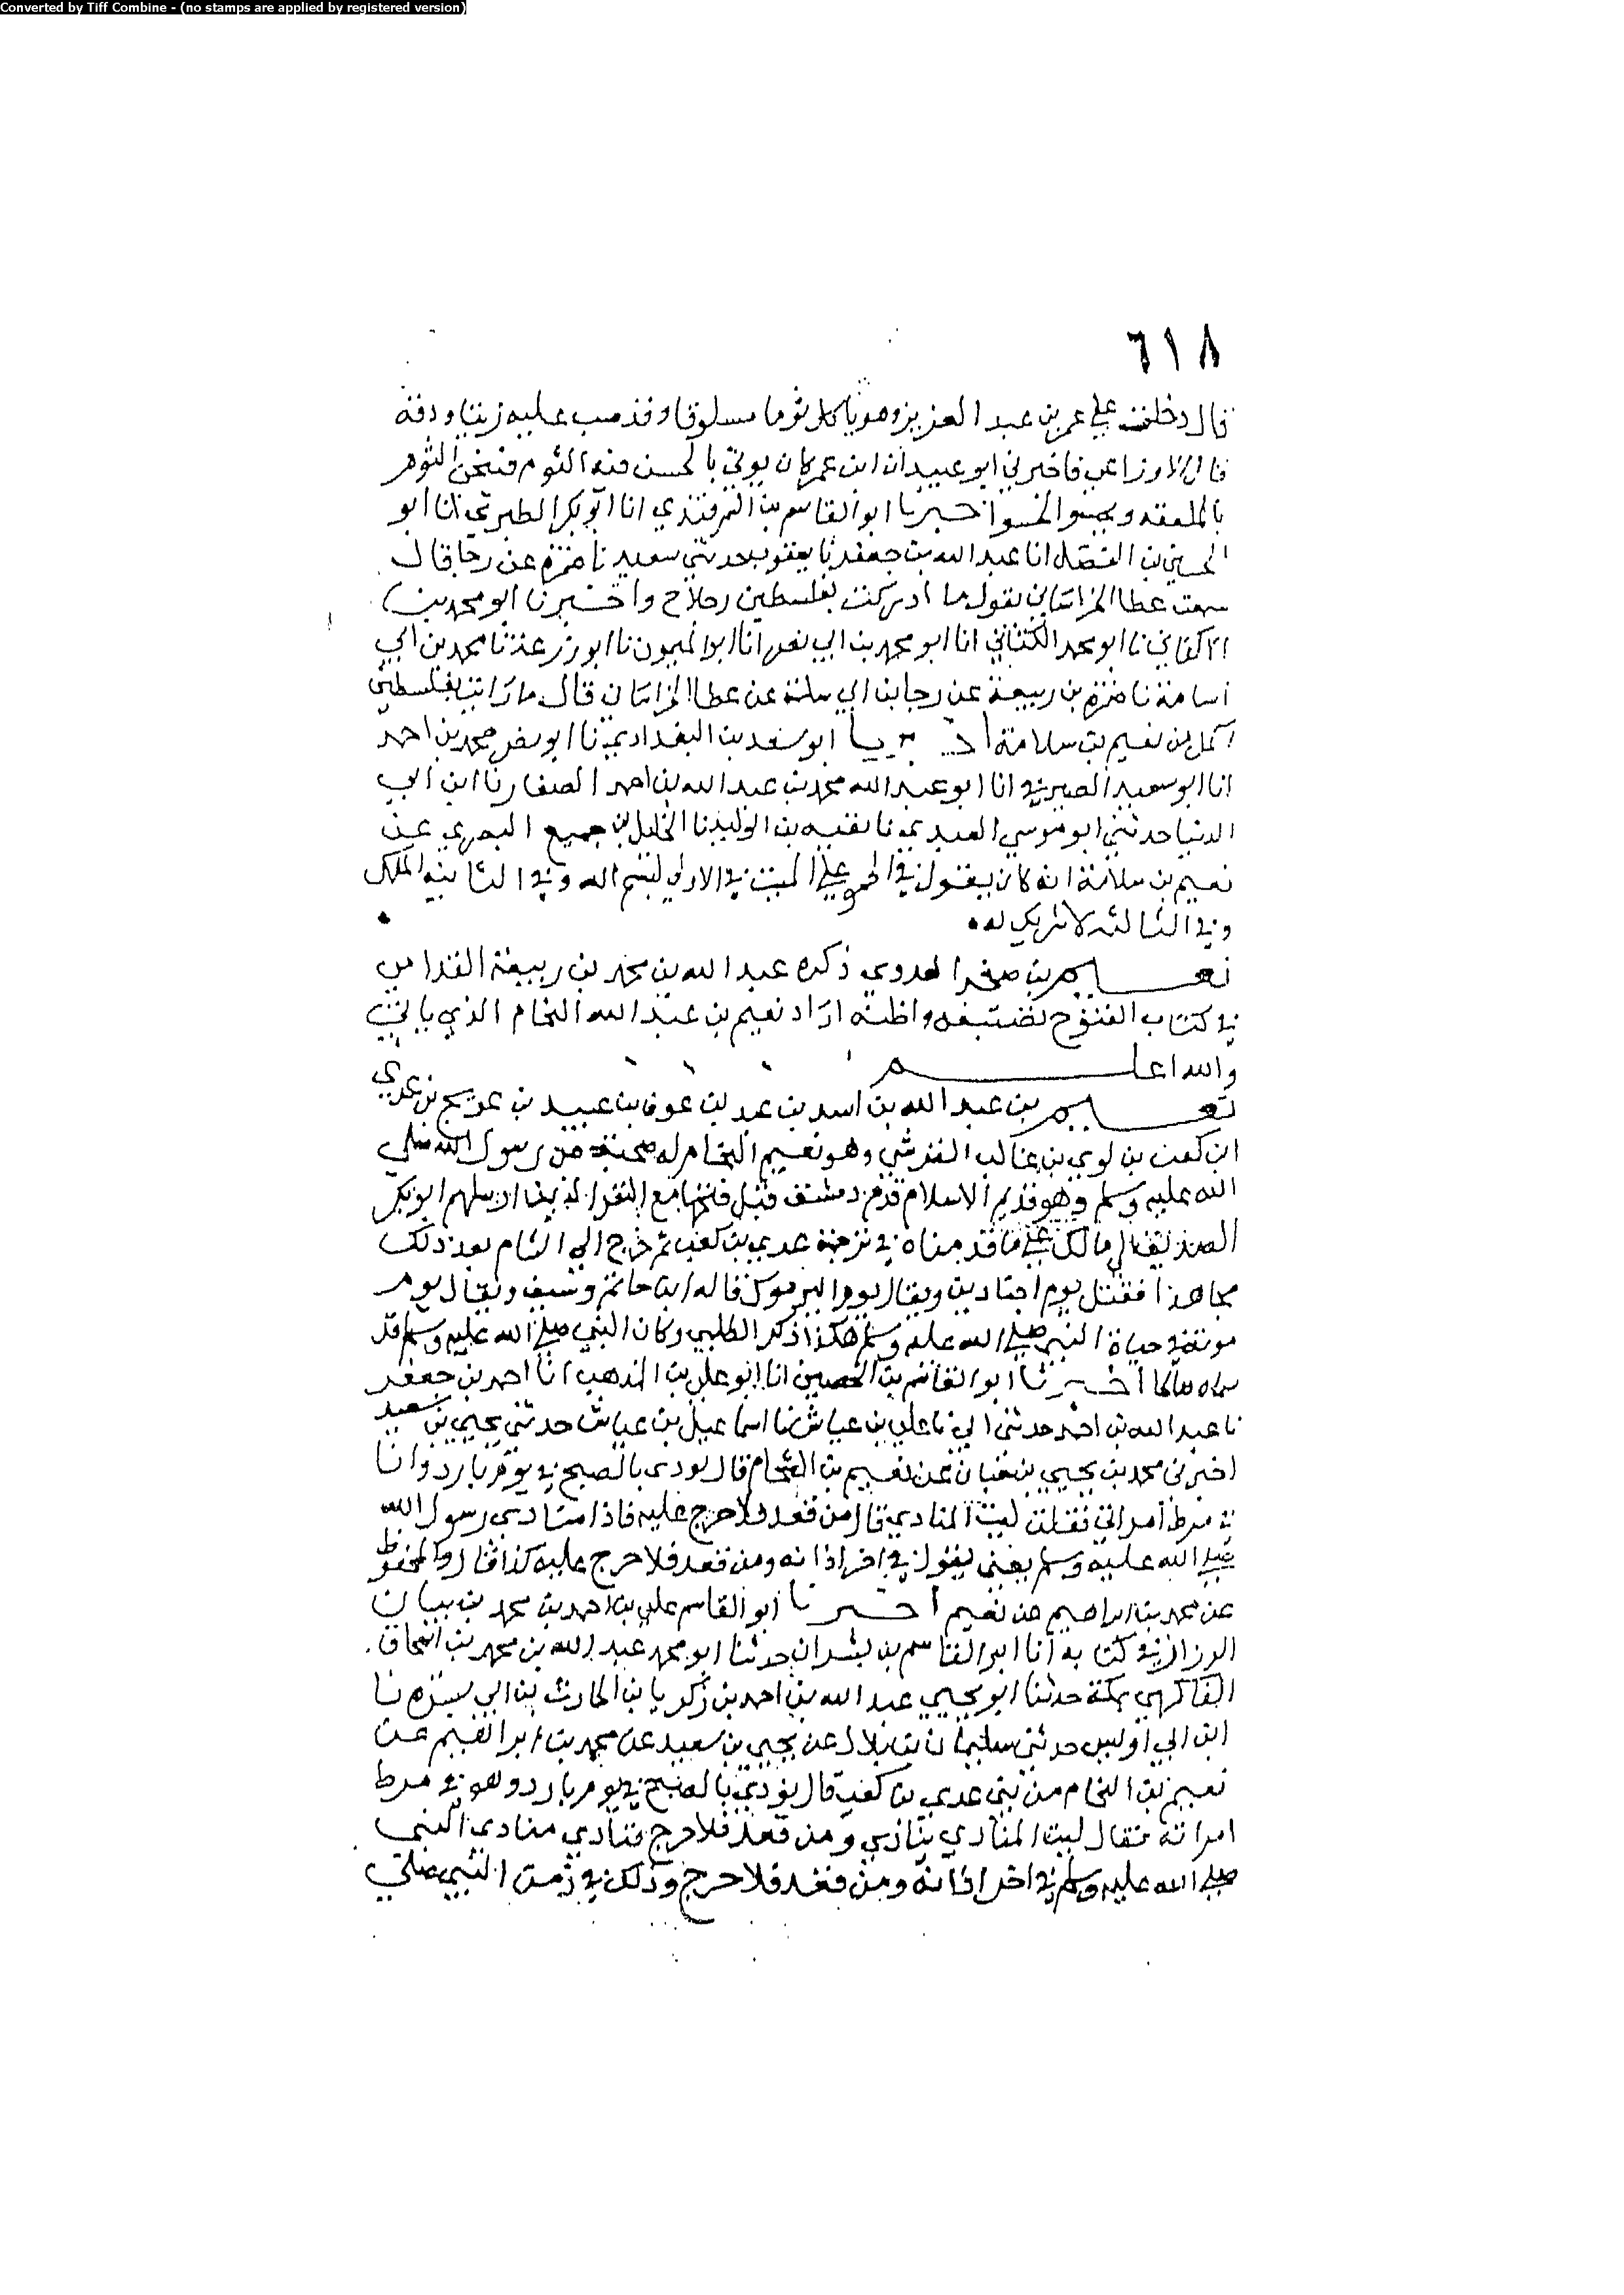 Converted by Tiff Combine - (no stamps are applied by registered version)
٦١٨
قال دخلت على عمر بن عبد العزيز وهو ياكل ثوما مسلوقا وقد صب عليه زيتا ودقه
قال الاوزاعي فاخبرني ابو عبيد ان ابن عمر كان يوتي بالحسو فيه الثوم فينحي الثوم
بالملعقه ويحسو الحسو اخبرنا ابو القاسم بن السمرقندي انا ابو بكر الطبري انا ابو
الحسين بن الفضل انا عبد الله بن جعفر نا يعقوب حدثني سعيد نا ضمرة عن رجا قال
سمعت عطا الخراساني يقول ما ادركت بفلسطين رجلا ح واخبرنا ابو محمد بن
الاكفاني نا ابو محمد الكتاني انا ابو محمد بن ابي نصر انا ابو الميمون نا ابو زرعة نا محمد بن ابي
اسامة نا ضمرة بن ربيعة عن رجا بن ابي سلمة عن عطا الخراساني قال ما رايت بفلسطين
اكمل من نعيم بن سلامة اخبرنا ابو سعد بن البغدادي نا ابو نصر محمد بن احمد
انا ابو سعيد الصيرفي انا ابو عبد الله محمد بن عبد الله بن احمد الصفار نا ابن ابي
الدنيا حدثني ابو موسي العبدي نا بقيه بن الوليد نا الخليل بن جميع البصري عن
نعيم بن سلامة انه كان يقول في الحثو علي الميت في الاولي بسم الله وفي الثانيه الملك
وفي الثالثه لا شريك له
نعيم بن صخر العدوي ذكره عبد الله بن محمد بن ربيعة القدامي
في كتاب الفتوح تصنيفه واظنه اراد نعيم بن عبد الله النحام الذي ياتي
والله اعلم
نعيم بن عبد الله بن اسد بن عبد بن عوف بن عبيد بن عويج بن عدي
ابن كعب بن لوي بن غالب القرشي وهو نعيم النحام له صحبة من رسول الله صلي
الله عليه وسلم وهو قديم الاسلام قدم دمشق قبل فتحها مع النفر الذين ارسلهم ابو بكر
الصديق الي ملك علي ما قدمناه في ترجمة عدي بن كعب ثم خرج الي الشام بعد ذلك
مجاهدا فقتل يوم اجنادين ويقال يوم اليرموك قاله ابن حاتم وسيف ويقال يوم
موتة في حياة النبي صلي الله عليه وسلم هكذا ذكر الطلبي وكان النبي صلي الله عليه وسلم قد
سماه صالحا اخبرنا ابو القاسم بن الحصين انا ابو علي بن المذهب انا احمد بن جعفر
نا عبد الله بن احمد حدثني ابي نا علي بن عياش نا اسماعيل بن عياش حدثني يحيي بن سعيد
اخبرني محمد بن يحيي بن حبان عن نعيم بن النحام قال نودي بالصبح في يوم بارد وانا
في مرط امراتي فقلت ليت المنادي قال من قعد فلا حرج عليه فاذا منادي رسول الله
صلي الله عليه وسلم يعني يقول في اخر اذانه ومن قعد فلا حرج عليه كذا قال والمحفوظ
عن محمد بن ابراهيم عن نعيم اخبرنا ابو القاسم علي بن احمد بن محمد بن بيان
الرزاز في كتابه انا ابو القاسم بن بشران حدثنا ابو محمد عبد الله بن محمد بن اسحاق
الفاكهي بمكة حدثنا ابو يحيي عبد الله بن احمد بن زكريا بن الحارث بن ابي ميسره نا
ابن ابي اويس حدثني سليمان بن بلال عن يحيي بن سعيد عن محمد بن ابراهيم عن
نعيم بن النحام من بني عدي بن كعب قال نودي بالصبح في يوم بارد وهو في مرط
امراته فقال ليت المنادي ينادي ومن قعد فلا حرج فنادي منادي النبي
صلي الله عليه وسلم في اخر اذانه ومن قعد فلا حرج وذلك في زمن النبي صلي